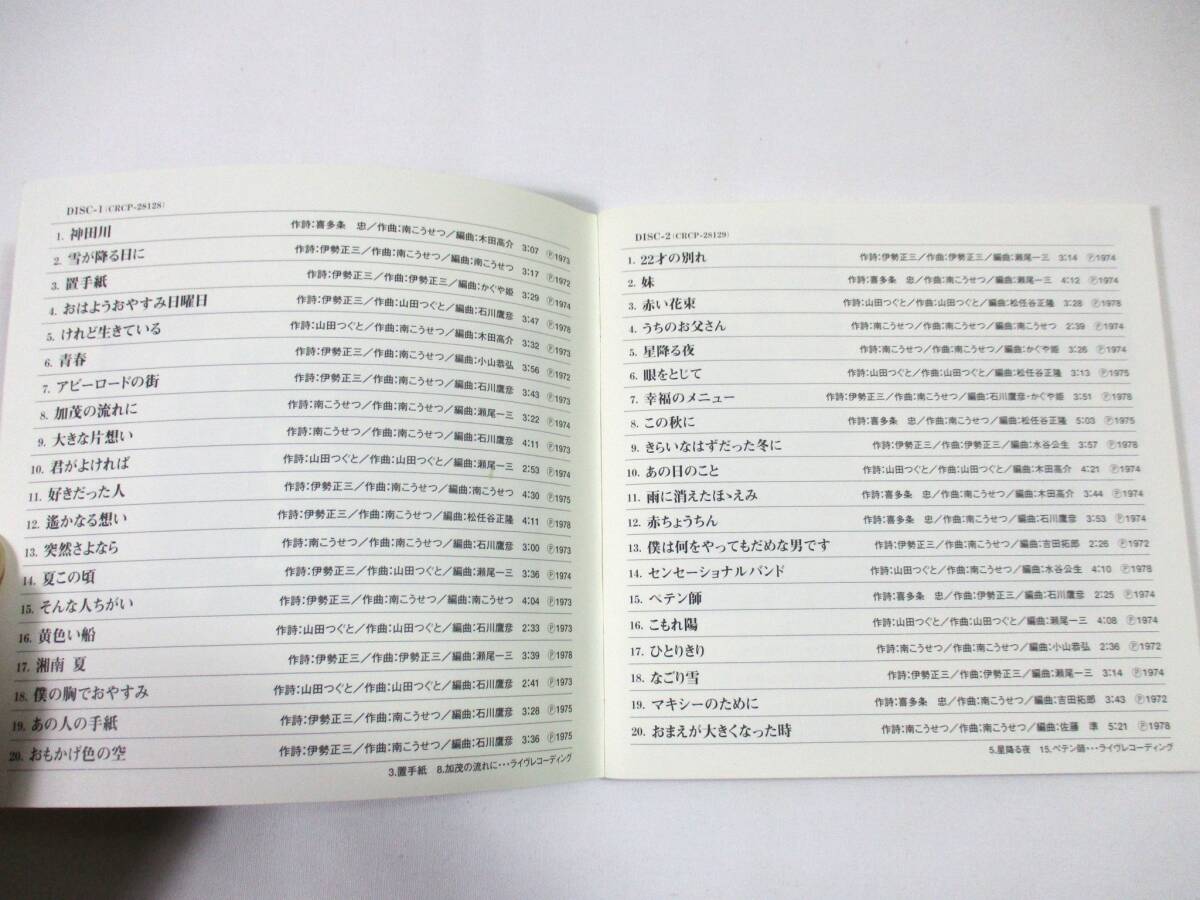 DISC-1 (CRCP-28128)
1. 神田川 作詩:喜多条 忠/作曲:南こうせつ/編曲:木田高介 3:07 Ⓟ1973
2. 雪が降る日に 作詩:伊勢正三/作曲:南こうせつ/編曲:南こうせつ 3:17 Ⓟ1972
3. 置手紙 作詩:伊勢正三/作曲:伊勢正三/編曲:かぐや姫 3:29 Ⓟ1974
4. おはようおやすみ日曜日 作詩:伊勢正三/作曲:山田つぐと/編曲:石川鷹彦 3:47 Ⓟ1978
5. けれど生きている 作詩:山田つぐと/作曲:南こうせつ/編曲:木田高介 3:32 Ⓟ1973
6. 青春 作詩:伊勢正三/作曲:南こうせつ/編曲:小山恭弘 3:56 Ⓟ1972
7. アビーロードの街 作詩:伊勢正三/作曲:南こうせつ/編曲:石川鷹彦 3:43 Ⓟ1973
8. 加茂の流れに 作詩:南こうせつ/作曲:南こうせつ/編曲:瀬尾一三 3:22 Ⓟ1974
9. 大きな片想い 作詩:南こうせつ/作曲:南こうせつ/編曲:石川鷹彦 4:11 Ⓟ1973
10. 君がよければ 作詩:山田つぐと/作曲:山田つぐと/編曲:瀬尾一三 2:53 Ⓟ1974
11. 好きだった人 作詩:伊勢正三/作曲:南こうせつ/編曲:南こうせつ 4:30 Ⓟ1975
12. 遙かなる想い 作詩:伊勢正三/作曲:南こうせつ/編曲:松任谷正隆 4:11 Ⓟ1978
13. 突然さよなら 作詩:南こうせつ/作曲:南こうせつ/編曲:石川鷹彦 3:00 Ⓟ1973
14. 夏この頃 作詩:伊勢正三/作曲:山田つぐと/編曲:瀬尾一三 3:36 Ⓟ1974
15. そんな人ちがい 作詩:伊勢正三/作曲:南こうせつ/編曲:南こうせつ 4:04 Ⓟ1973
16. 黄色い船 作詩:山田つぐと/作曲:南こうせつ/編曲:石川鷹彦 2:33 Ⓟ1973
17. 湘南 夏 作詩:伊勢正三/作曲:伊勢正三/編曲:瀬尾一三 3:39 Ⓟ1978
18. 僕の胸でおやすみ 作詩:山田つぐと/作曲:山田つぐと/編曲:石川鷹彦 2:41 Ⓟ1973
19. あの人の手紙 作詩:伊勢正三/作曲:南こうせつ/編曲:石川鷹彦 3:28 Ⓟ1975
20. おもかげ色の空 作詩:伊勢正三/作曲:南こうせつ/編曲:石川鷹彦 3:36 Ⓟ1975
3.置手紙 8.加茂の流れに・・・ライヴレコーディング
DISC-2 (CRCP-28129)
1. 22才の別れ 作詩:伊勢正三/作曲:伊勢正三/編曲:瀬尾一三 3:14 Ⓟ1974
2. 妹 作詩:喜多条 忠/作曲:南こうせつ/編曲:瀬尾一三 4:12 Ⓟ1974
3. 赤い花束 作詩:山田つぐと/作曲:山田つぐと/編曲:松任谷正隆 3:28 Ⓟ1978
4. うちのお父さん 作詩:南こうせつ/作曲:南こうせつ/編曲:南こうせつ 2:39 Ⓟ1974
5. 星降る夜 作詩:南こうせつ/作曲:南こうせつ/編曲:かぐや姫 3:26 Ⓟ1974
6. 眼をとじて 作詩:山田つぐと/作曲:山田つぐと/編曲:松任谷正隆 3:13 Ⓟ1975
7. 幸福のメニュー 作詩:伊勢正三/作曲:南こうせつ/編曲:石川鷹彦・かぐや姫 3:51 Ⓟ1978
8. この秋に 作詩:喜多条 忠/作曲:南こうせつ/編曲:松任谷正隆 5:03 Ⓟ1975
9. きらいなはずだった冬に 作詩:伊勢正三/作曲:伊勢正三/編曲:水谷公生 3:57 Ⓟ1978
10. あの日のこと 作詩:山田つぐと/作曲:山田つぐと/編曲:木田高介 4:21 Ⓟ1974
11. 雨に消えたほゝえみ 作詩:喜多条 忠/作曲:南こうせつ/編曲:木田高介 3:44 Ⓟ1974
12. 赤ちょうちん 作詩:喜多条 忠/作曲:南こうせつ/編曲:石川鷹彦 3:53 Ⓟ1974
13. 僕は何をやってもだめな男です 作詩:伊勢正三/作曲:南こうせつ/編曲:吉田拓郎 2:26 Ⓟ1972
14. センセーショナルバンド 作詩:山田つぐと/作曲:南こうせつ/編曲:水谷公生 4:10 Ⓟ1978
15. ペテン師 作詩:喜多条 忠/作曲:伊勢正三/編曲:石川鷹彦 2:25 Ⓟ1974
16. こもれ陽 作詩:山田つぐと/作曲:山田つぐと/編曲:瀬尾一三 4:08 Ⓟ1974
17. ひとりきり 作詩:南こうせつ/作曲:南こうせつ/編曲:小山恭弘 2:36 Ⓟ1972
18. なごり雪 作詩:伊勢正三/作曲:伊勢正三/編曲:瀬尾一三 3:14 Ⓟ1974
19. マキシーのために 作詩:喜多条 忠/作曲:南こうせつ/編曲:吉田拓郎 3:43 Ⓟ1972
20. おまえが大きくなった時 作詩:南こうせつ/作曲:南こうせつ/編曲:佐藤 準 5:21 Ⓟ1978
5.星降る夜 15.ペテン師・・・ライヴレコーディング